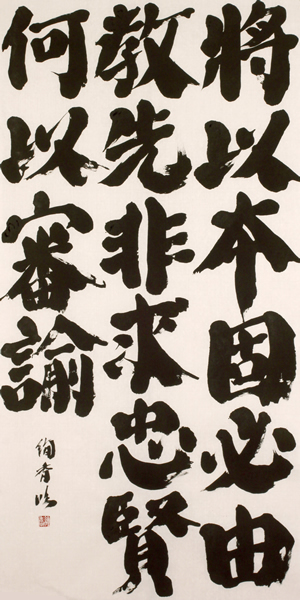 將以本固必由
教先非求忠賢
何以審諭
絢香臨